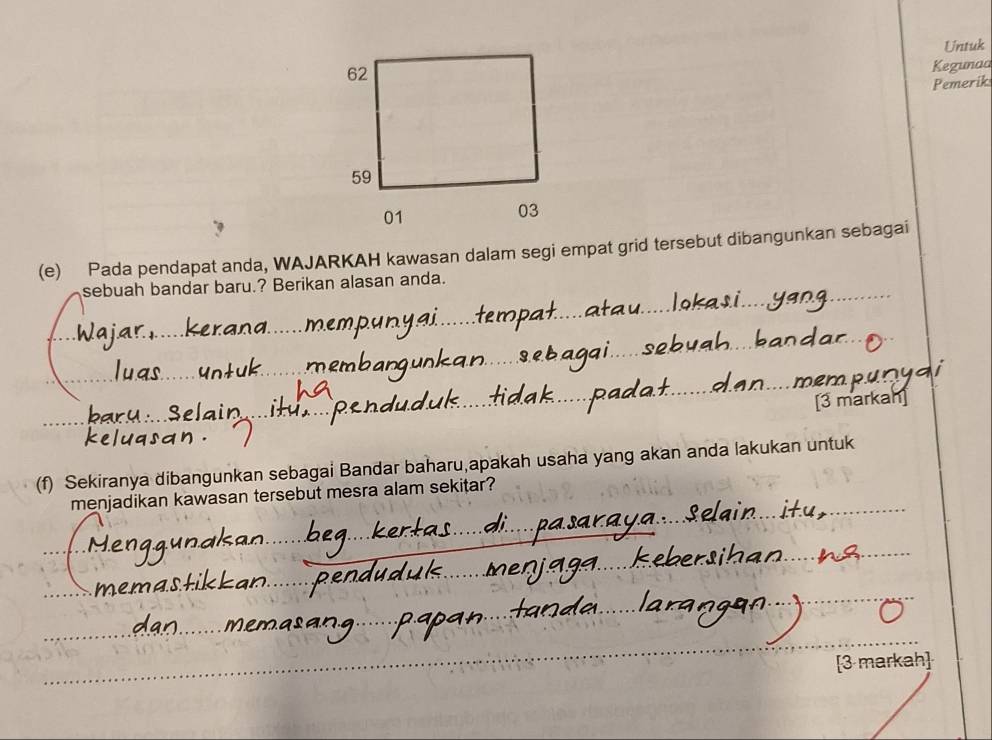 Untuk
Kegunaa
Pemeriks
62
59
01 03
(e) Pada pendapat anda, WAJARKAH kawasan dalam segi empat grid tersebut dibangunkan sebagai
sebuah bandar baru.? Berikan alasan anda.
Wajar, kerana mempunyai tempat atau lokasi yang
luas untuk membangunkan sebagai sebuah bandar 0
ha
baru. Selain itu, penduduk tidak padat dan mempunyai
[3 markah]
keluasan.
(f) Sekiranya dibangunkan sebagai Bandar baharu,apakah usaha yang akan anda lakukan untuk
menjadikan kawasan tersebut mesra alam sekitar?
Menggunakan beg kertas di pasaraya. Selain itu,
memastikkan penduduk menjaga kebersihan na
dan memasang papan tanda larangan. 0
[3 markah]